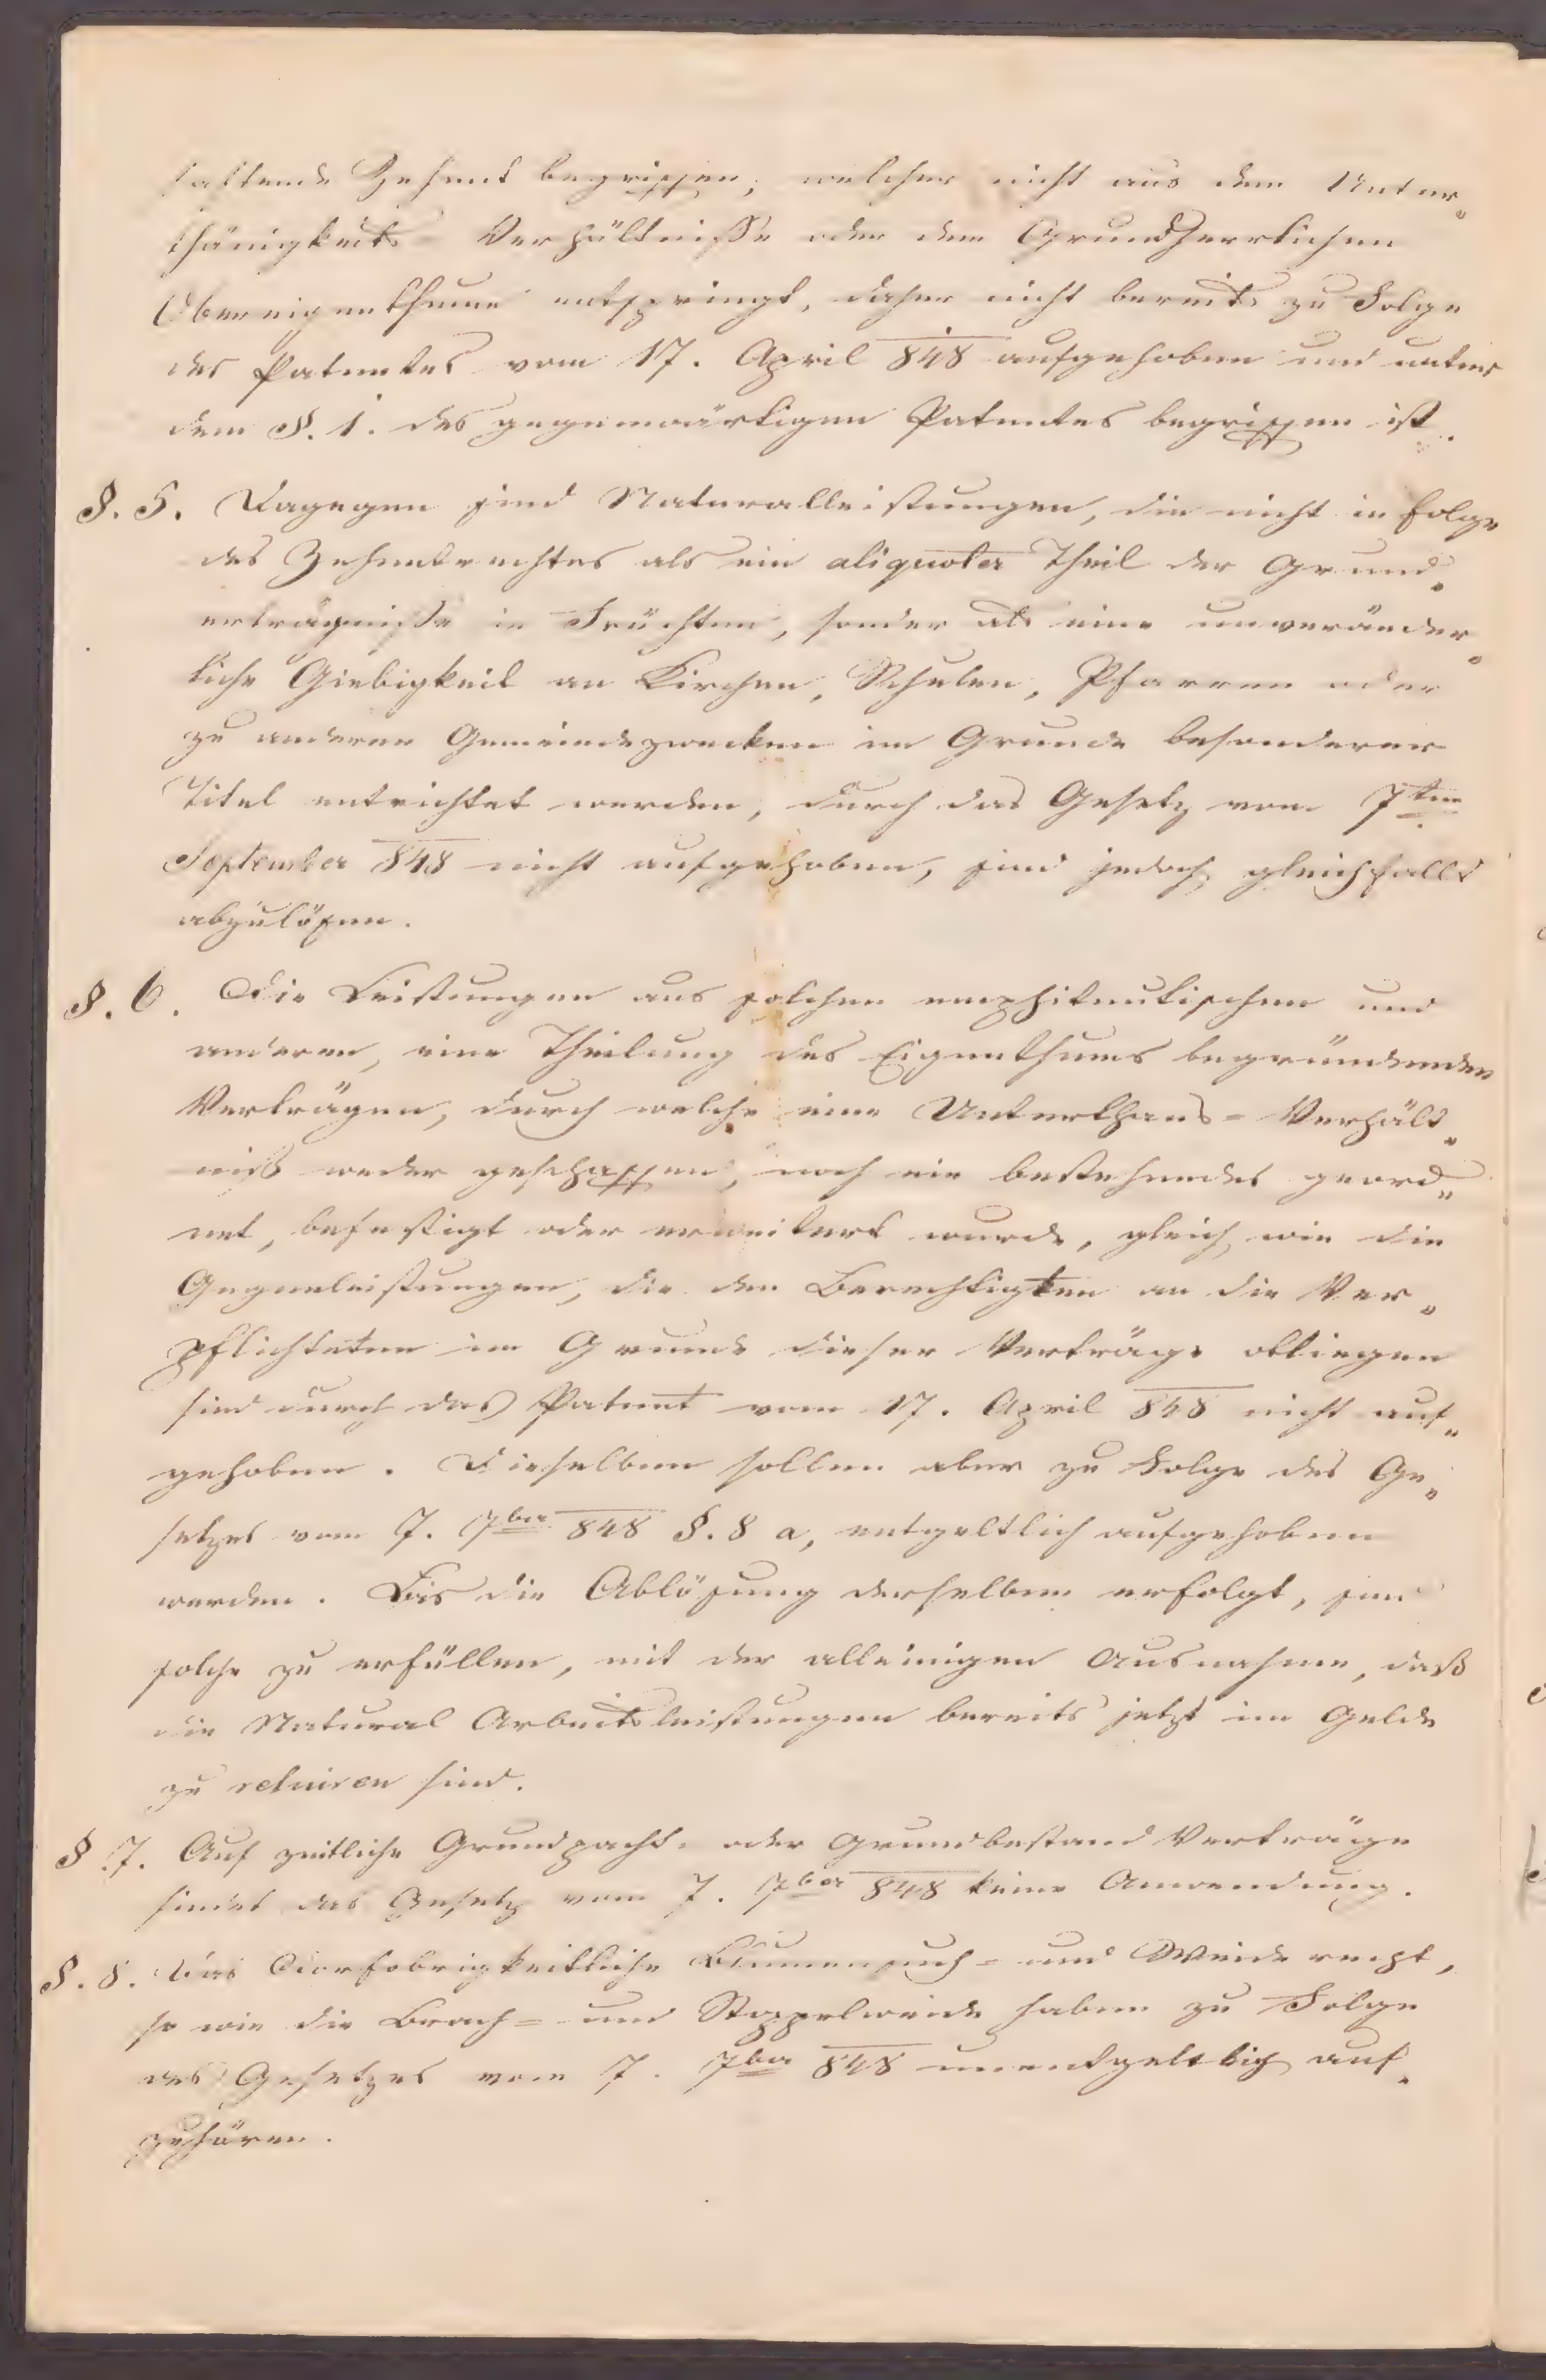 haftende Zehent begriffen, welcher nicht aus dem Unter„
thänigkeits Verhältnisse oder dem Grundherrlichen
Obereigenthume entspringt, daher nicht bereits zu Folge
des Patentes vom 17. April 848 aufgehoben und unter
dem §. 1. des gegenwärtigen Patentes begriffen ist.
§. 5. Dagegen sind Naturalleistungen, die nicht in Folge
des Zehentrechtes als ein aliquoter Theil der Grund„
erträgnisse in Früchten, sonder als eine unveränder„
liche Giebigkeit an Kirchen, Schulen, Pfarren oder
zu anderen Gemeindezwecken im Grunde besonderer
Titel entrichtet werden, durch das Gesetz vom 7ten
September 848 nicht aufgehoben, sind jedoch gleichfalls
abzulösen.
§. 6. Die Leistungen aus solchen emphiteutischen und
anderen, eine Theilung des Eigenthums begründenden
Verträgen, durch welche eine Unterthans=Verhält„
niß weder geschaffen, noch ein bestehendes geord„
net, befestigt oder erweitert wurde, gleich wie die
Gegenleistungen, die den Berechtigten an die Ver„
pflichteten im Grunde dieser Verträge obliegen
sind durch das Patent vom 17. April 848 nicht auf„
gehoben. Dieselben sollen aber zu Folge des Ge„
setzes vom 7. 7ber 848 §. 8 a, entgeltlich aufgehoben
werden. Bis die Ablösung derselben erfolgt, sind
solche zu erfüllen, mit der alleinigen Ausnahme, daß
die Natural Arbeitsleistungen bereits jetzt im Gelde
zu reluiren sind.
§ 7. Auf zeitliche Grundpacht= oder Grundbestand Verträge
findet das Gesetz vom 7. 7ber 848 keine Anwendung.
§. 8. Das Dorfobrigkeitliche Blumensuch= und Weiderecht,
so wie die Brach= und Stoppelweide haben zu Folge
des Gesetzes vom 7. 7ber 848 unentgeltlich auf„
zuhören.